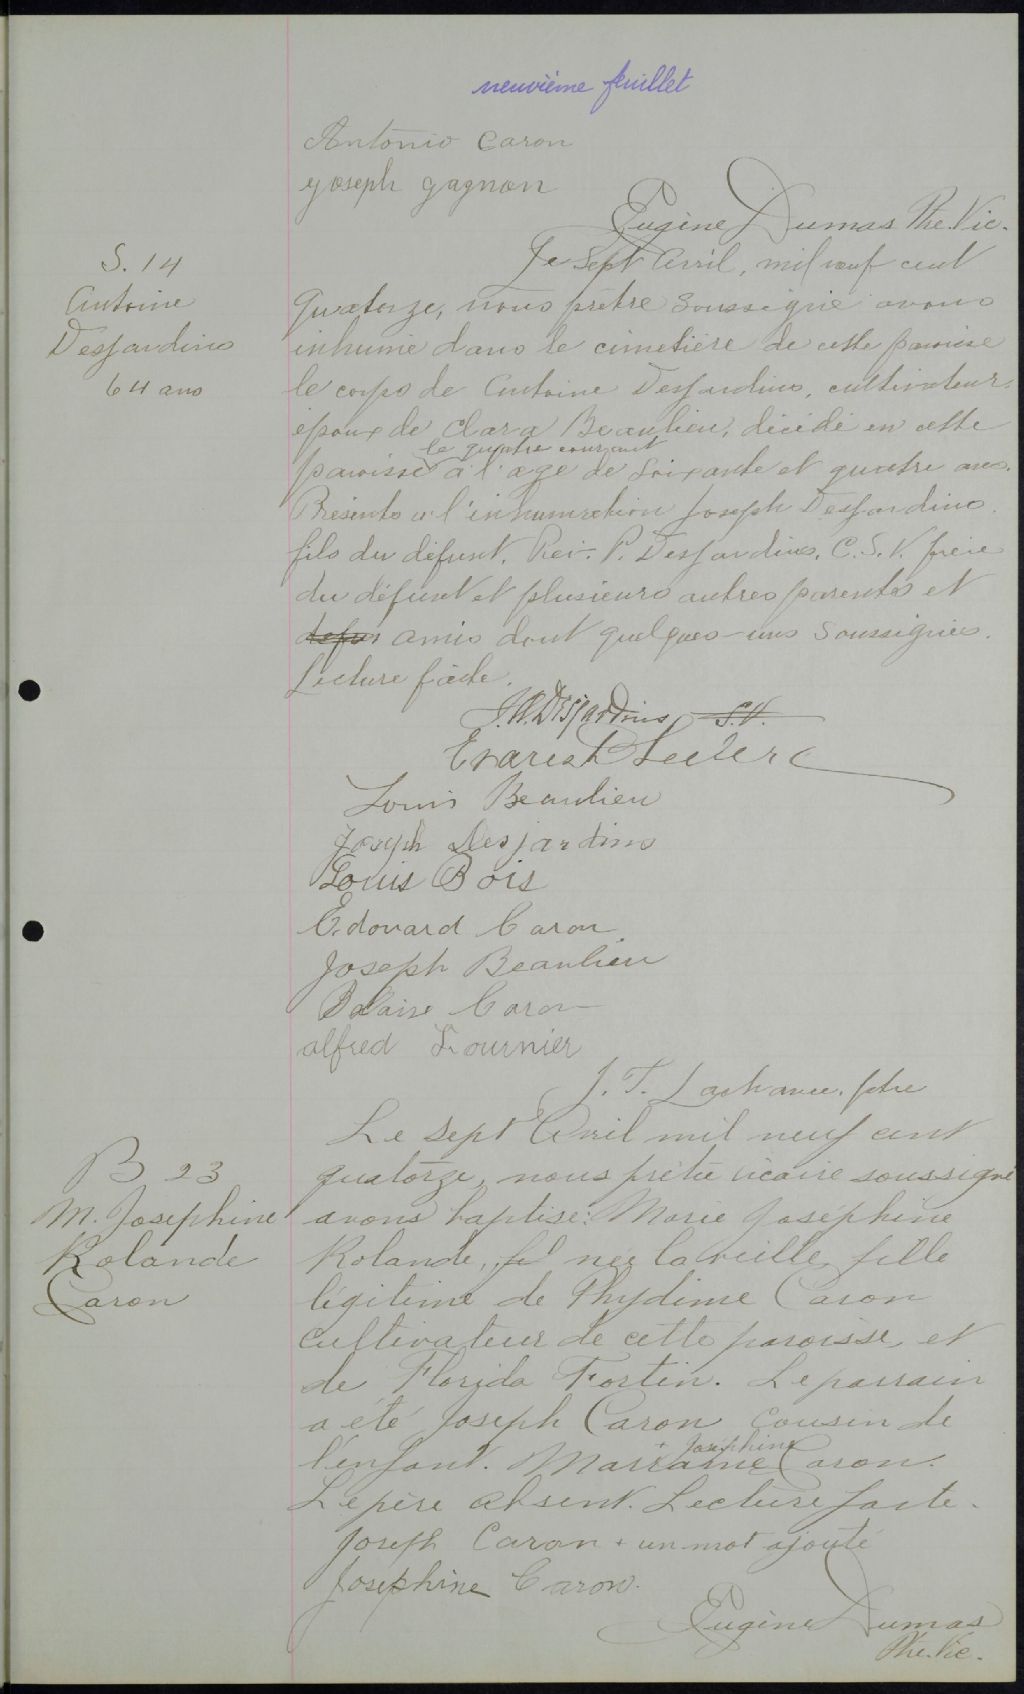 neuvième feuillet
Antonio Caron
Joseph gagnon
Eugène Dumas Ptre. Vic.
S. 14
Antoine
Desjardins
64 ans
Le sept Avril, mil neuf cent
quatorze, nous prêtre soussigné avons
inhumé dans le cimetière de cette paroisse
le corps de Antoine Desjardins, cultivateur,
époux de Clara Beaulieu, décédé en cette
le quatre courant
paroisse à l'age de soixante et quatre ans.
Présents à l'inhumation Joseph Desjardins
fils du défunt, Rév. P. Desjardins, C.S.V. frère
du défunt et plusieurs autres parents et
amis dont quelques-uns soussignés.
Lecture faite.
J.A. Desjardins S.V.
Evariste Leclerc
Louis Beaulieu
Joseph Desjardins
Louis Bois
Edouard Caron
Joseph Beaulieu
Blaise Caron
alfred Fournier
J. T. Lachance, ptre
B 23
M. Josephine
Rolande
Caron
Le sept Avril mil neuf cent
quatorze, nous prêtre vicaire soussigné
avons baptisé: Marie Joséphine
Rolande, née la veille, fille
légitime de Phydime Caron
cultivateur de cette paroisse, et
de Florida Fortin. Le parrain
a été Joseph Caron cousin de
+ Joséphine
l'enfant. Marraine Caron.
Le père absent. Lecture faite.
Joseph Caron + un mot ajouté
Josephine Caron.
Eugène Dumas
Ptre. Vic.